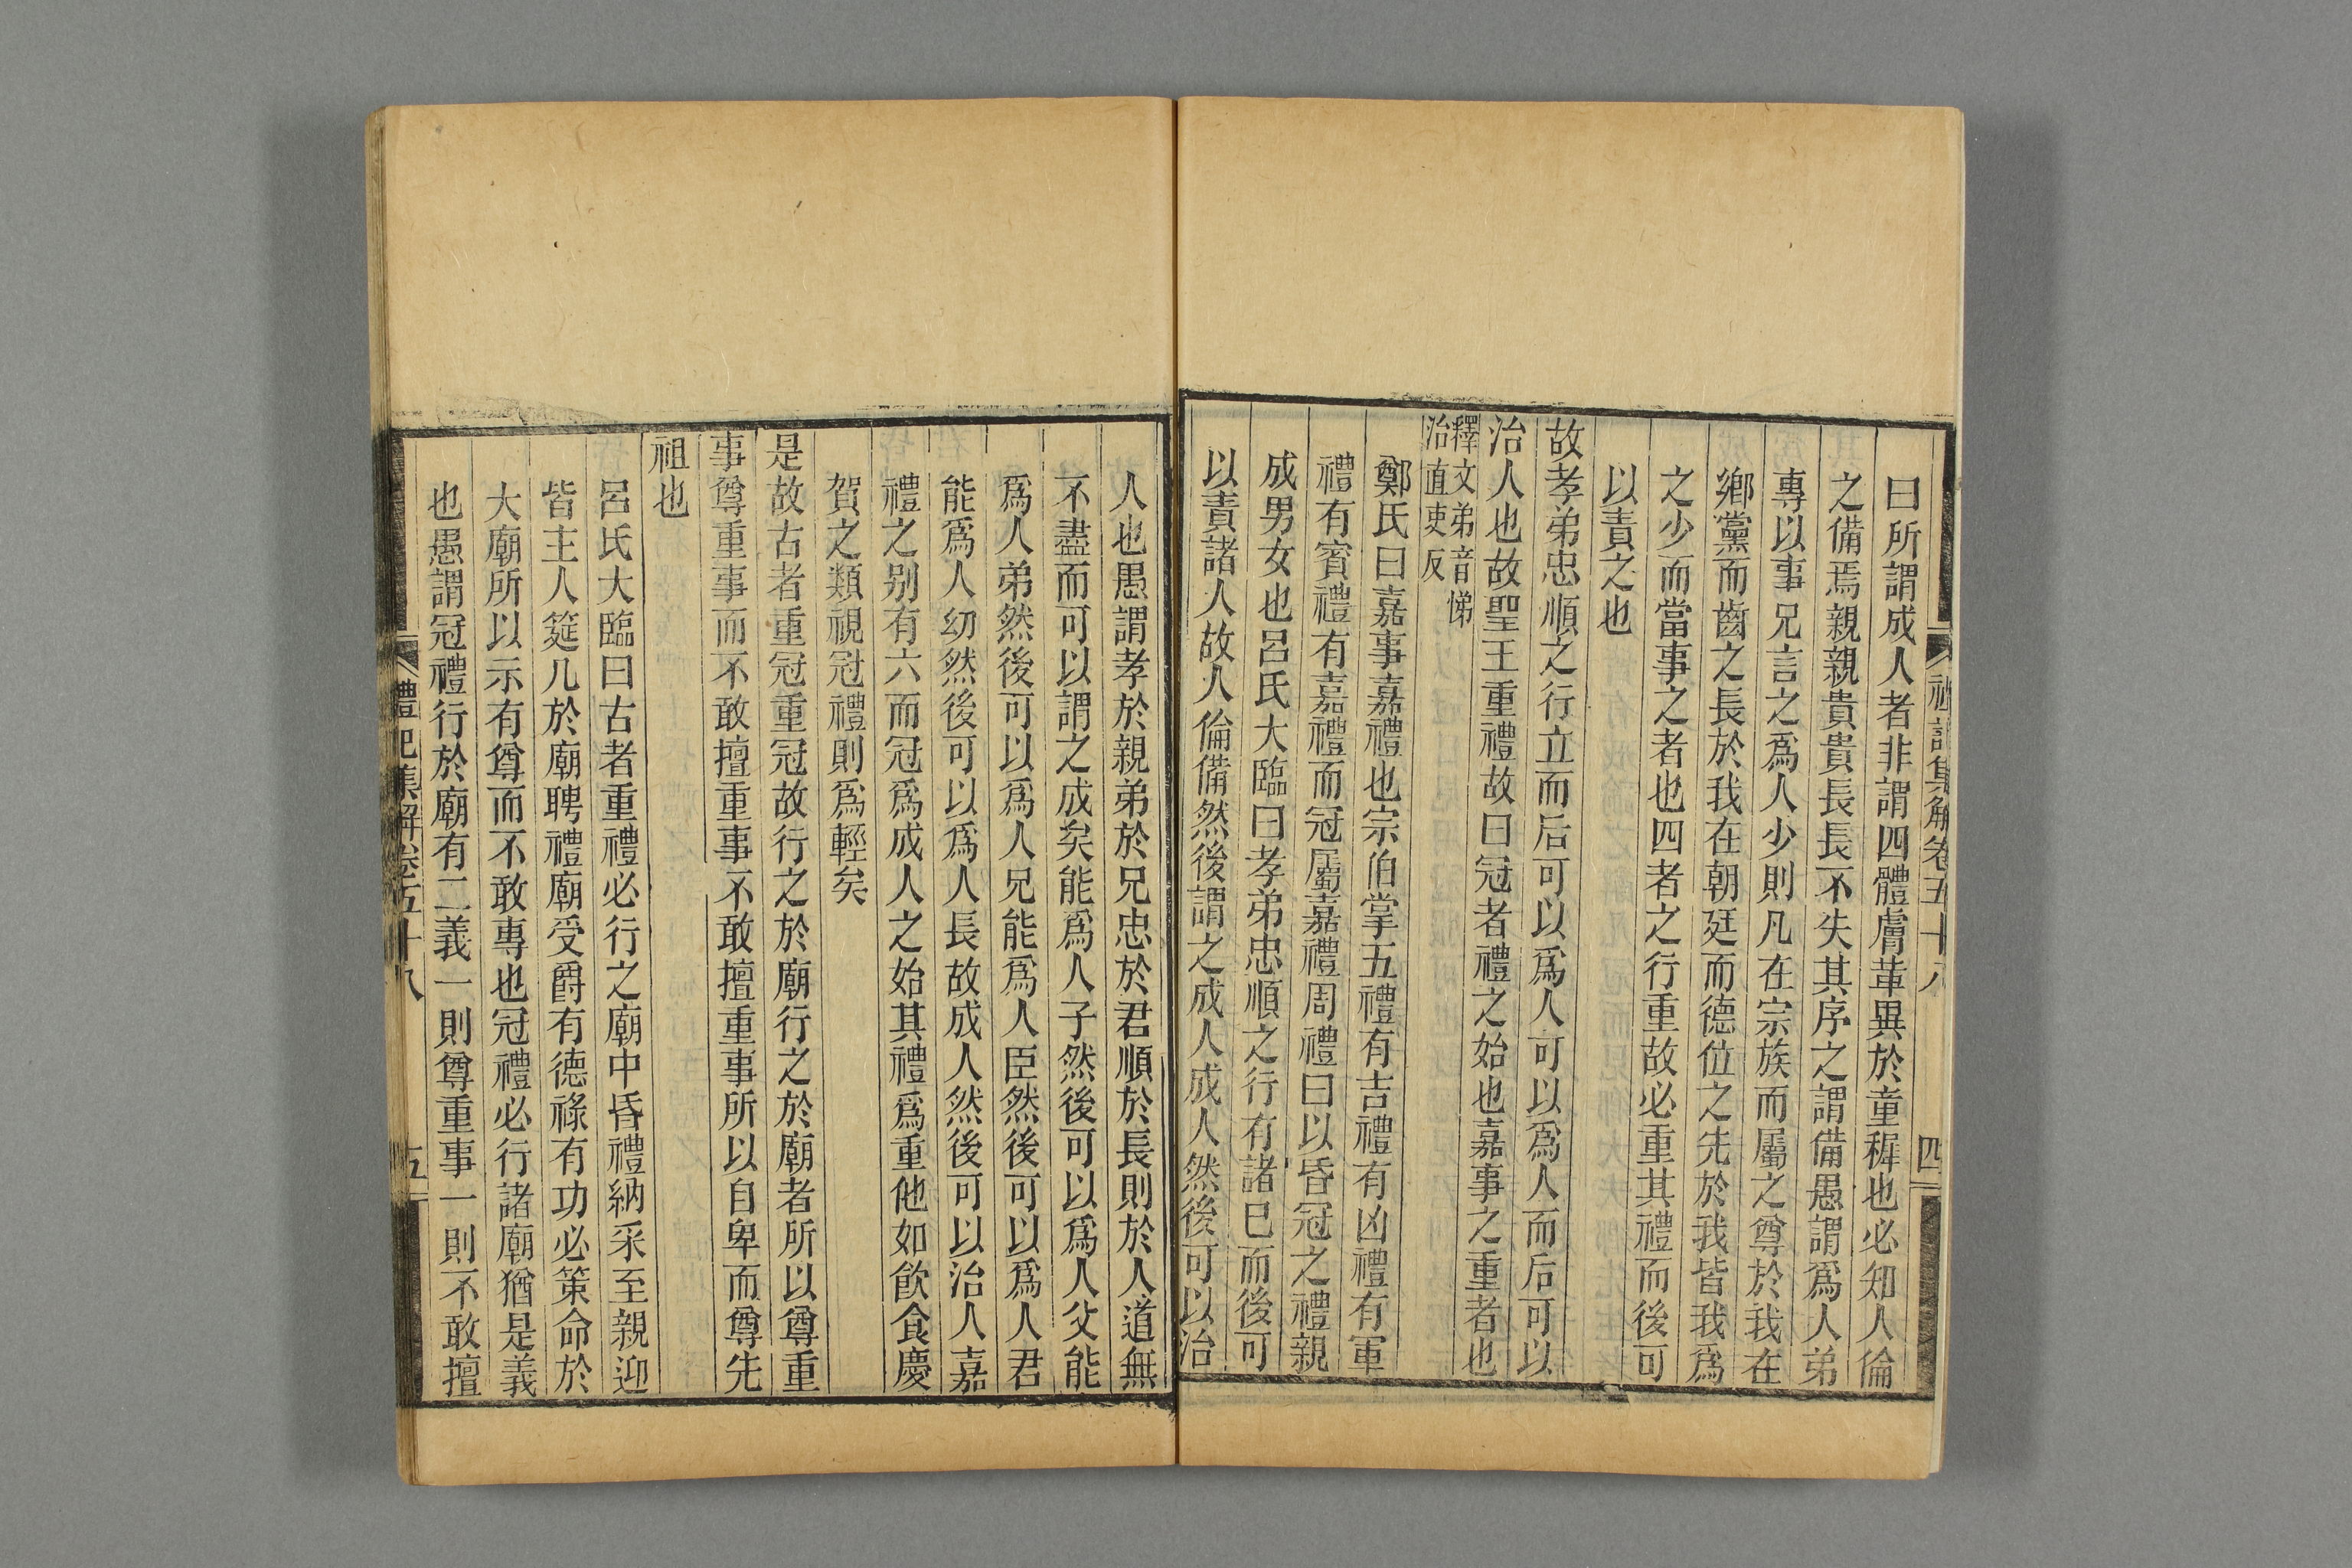 禮記集解卷五十八
四
曰所謂成人者非謂四體膚革異於童穉也必知人倫
之備焉親親貴貴長長不失其序之謂備愚謂爲人弟
專以事兄言之爲人少則凡在宗族而屬之尊於我在
鄉黨而齒之長於我在朝廷而德位之先於我皆我爲
之少而當事之者也四者之行重故必重其禮而後可
以責之也
故孝弟忠順之行立而后可以爲人可以爲人而后可以
治人也故聖王重禮故曰冠者禮之始也嘉事之重者也
釋文弟音悌
治直吏反
鄭氏曰嘉事嘉禮也宗伯掌五禮有吉禮有凶禮有軍
禮有賓禮有嘉禮而冠屬嘉禮周禮曰以昏冠之禮親
成男女也呂氏大臨曰孝弟忠順之行有諸已而後可
以責諸人故人倫備然後謂之成人成人然後可以治
人也愚謂孝於親弟於兄忠於君順於長則於人道無
不盡而可以謂之成矣能爲人子然後可以爲人父能
爲人弟然後可以爲人兄能爲人臣然後可以爲人君
能爲人幼然後可以爲人長故成人然後可以治人嘉
禮之别有六而冠爲成人之始其禮爲重他如飲食慶
賀之類視冠禮則爲輕矣
是故古者重冠重冠故行之於廟行之於廟者所以尊重
事尊重事而不敢擅重事不敢擅重事所以自卑而尊先
祖也
呂氏大臨曰古者重禮必行之廟中昏禮納采至親迎
皆主人筵几於廟聘禮廟受爵有德祿有功必策命於
大廟所以示有尊而不敢專也冠禮必行諸廟猶是義
也愚謂冠禮行於廟有二義一則尊重事一則不敢擅
禮記集解卷五十八
五